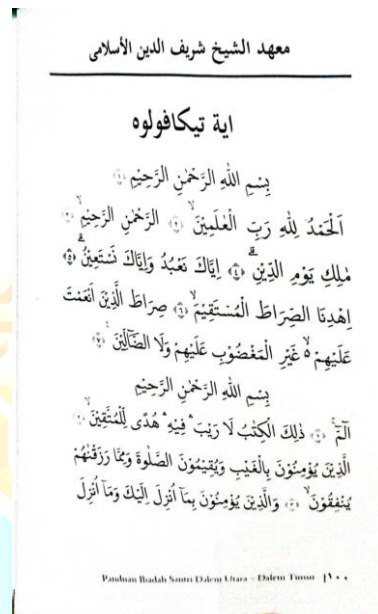 معهد الشيخ شريف الدين الأسلامى
اية تيكافولوه
بِسْمِ اللهِ الرَّحْمٰنِ الرَّحِيْمِ ﴿١﴾
اَلْحَمْدُ لِلهِ رَبِّ الْعٰلَمِيْنَۙ ﴿٢﴾ الرَّحْمٰنِ الرَّحِيْمِۙ ﴿٣﴾
مٰلِكِ يَوْمِ الدِّيْنِۗ ﴿٤﴾ اِيَّاكَ نَعْبُدُ وَاِيَّاكَ نَسْتَعِيْنُۗ ﴿٥﴾
اِهْدِنَا الصِّرَاطَ الْمُسْتَقِيْمَۙ ﴿٦﴾ صِرَاطَ الَّذِيْنَ اَنْعَمْتَ
عَلَيْهِمْ ەۙ غَيْرِ الْمَغْضُوْبِ عَلَيْهِمْ وَلَا الضَّاۤلِّيْنَ ﴿٧﴾
بِسْمِ اللهِ الرَّحْمٰنِ الرَّحِيْمِ
الۤمّۤۚ ﴿١﴾ ذٰلِكَ الْكِتٰبُ لَا رَيْبَۛ فِيْهِۛ هُدًى لِّلْمُتَّقِيْنَۙ ﴿٢﴾
الَّذِيْنَ يُؤْمِنُوْنَ بِالْغَيْبِ وَيُقِيْمُوْنَ الصَّلٰوةَ وَمِمَّا رَزَقْنٰهُمْ
يُنْفِقُوْنَۙ ﴿٣﴾ وَالَّذِيْنَ يُؤْمِنُوْنَ بِمَآ اُنْزِلَ اِلَيْكَ وَمَآ اُنْزِلَ
Panduan Ibadah Santri Dalem Utara – Dalem Timur |١٠٠